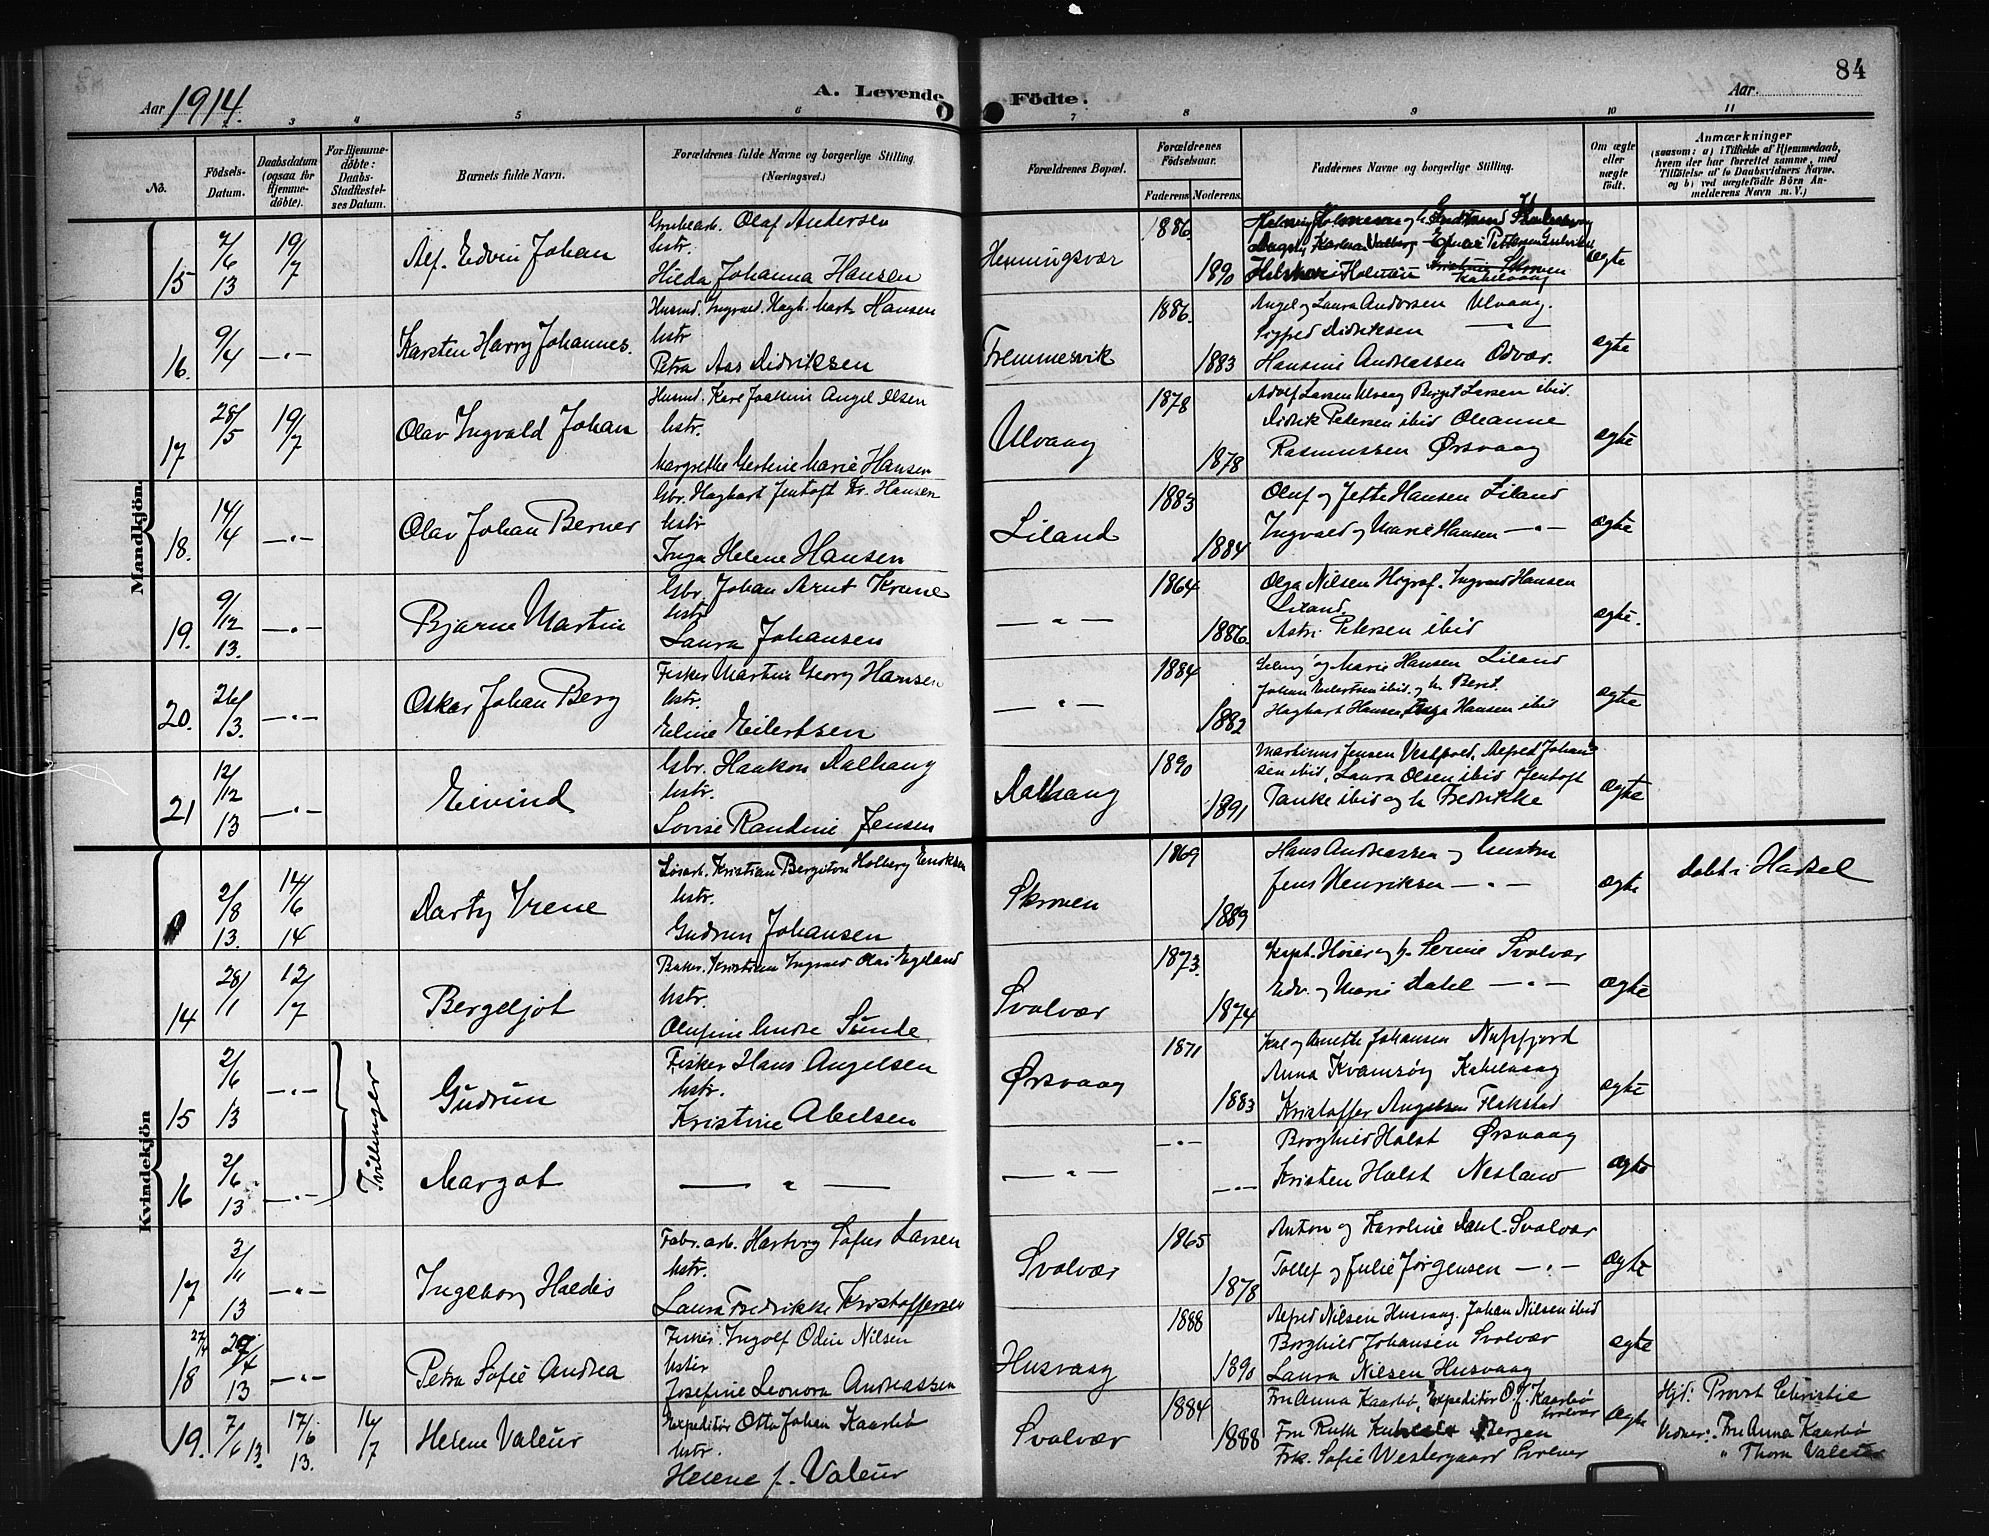 84
Aar 1914.
A. Levende Födte.
Aar.
3 4 5 6 7 8 9 10 11
No.
Födsels-Datum.
Daabsdatum (ogsaa for Hjemmedöbte).
For Hjemmedöbte: Daabs-Stadfæstelses Datum.
Barnets fulde Navn.
Forældrenes fulde Navne og borgerlige Stilling. (Næringsvei.)
Forældrenes Bopæl.
Forældrenes Födselsaar.
Faderens Moderens
Faddernes Navne og borgerlige Stilling.
Om ægte eller uægte födt.
Anmærkninger
(saasom: a) i Tilfælde af Hjemmedaab, hvem der har forrettet samme, med Tilföielse af to Daabsvidners Navne, og b) ved uægtefödte Börn Anmelderens Navn m. V.)
Mandkjön
15 2/6 13 19/7 Alf Edvin Johan
Grubearb. Olaf Andersen
hstr.
Hilda Johanna Hansen
Henningsvær 1886 1890
ægte
16. 9/4 —„— Karsten Harry Johannes.
Husmd. Ingvald Hagb.mart. Hansen
hstr
Petra Aas Didriksen
Fremmesvik 1886. 1883
Angel og Laura Andersen Ulvaag.
Sigfred Didriksen —„—
Hansine Andreassen Odvær.
ægte
17 28/5 19/7 Olav Ingvald Johan
Husmd. Karl Joakim Angel Olsen
hstr.
Margrethe Gertine Marie Hansen
Ulvaag 1878 1878
Adolf Larsen Ulvaag Berget Larsen ibid.
Didrik Petersen ibid Oleanne
Rasmussen Ørsvaag
ægte
18. 14/4 —„— Olav Johan Berner
Gbr. Hagbart Jentoft Kr. Hansen
hstr
Inga Helene Hansen
Liland 1883 1884
Oluf og Jette Hansen Liland
Ingvald og Marie Hansen —„—
ægte
19. 9/12 13. —„— Bjarne Martin
Gbr. Johan Arnt Krane
hstr
Laura Johansen
—„— 1864 1886
Olga Nilsen Higrav. Ingvald Hansen
Liland.
Astri Petersen ibid
ægte.
20. 26/3. —„— Oskar Johan Berg
Fisker Martin Georg Hansen
hstr.
Eline Eilertsen
—„— 1884 1882
og Marie Hansen Liland
Johan Eilertsen ibid. og h. Beret.
Hagbart Hansen, Inga Hansen ibid
ægte
21 12/12 13 —„— Eivind
Gbr. Haakon Dalhaug
hstr.
Lovise Randine Jensen
Dalhaug 1890 1891
Martinus Jensen Vestpold, Alfred Johansen ibid, Laura Olsen ibid Jentoft
Tanke ibid og h Fredrikke
ægte
Kvindekjön
2/8 13. 14/6 14 Darty Irene
Lösarb. Kristian Bergiton Holberg Eriksen
hstr.
Gudrun Johansen
Skroven 1869 1889
Hans Andreassen og hustru
Jens Henriksen —„—
ægte
döbt i Hadsel
14 28/11 12/7 Bergeljot
Baker Kristian Ingvald Olai Egeland
hstr.
Olufine Sunde
Svolvær 1873. 1874
Kapt. Höier og h. Serine Svolvær
Edv. og Marie Dahl —„—
ægte
15 2/6 13 —„— Tvillinger Gudrun
Fisker Hans Angelsen
hstr.
Kristine Abelsen
Ørsvaag 1871 1883
Karl og Anette Johansen Nufsfjord
Anna Kvamsöy Kabelvaag
Kristoffer Angelsen Flakstad
ægte
16 2/6 13 —„— Margot
—„—
—„— —„— —„—
Borghild Holst Ørsvaag
Kristen Holst Nesland
ægte
17 2/11 13 —„— Ingeborg Haldis
Fabr. arb. Hartvig Sofus Larsen
hstr.
Laura Fredrikke Kristoffersen
Svolvær 1865 1878
Anton og Karoline Dahl Svolvær
Tollef og Julie Jörgensen —„—
ægte
18 27/4 13 —„— Petra Sofie Andrea
Fisker Ingolf Odin Nilsen
hstr
Josefine Leonora Andreassen
Husvaag 1888 1890
Alfred Nilsen Husvaag. Johan Nilsen ibid
Borghild Johansen Svolvær
Laura Nilsen Husvaag
ægte
19. 7/6 13. 17/6 13. 16/7 Helene Valeur
Expeditör Otto Johan Kaarbö
hstr.
Helene f. Valeur
Svolvær 1884 1888
Fru Anna Kaarbö, Expeditör O. J. Kaarbö Svolvær
Fru Ruth Bergen
Frk. Sofie Westergaard Svolvær
ægte
Hjd: Provst Christie
Vidner: Fru Anna Kaarbö
„ Thora Valeur